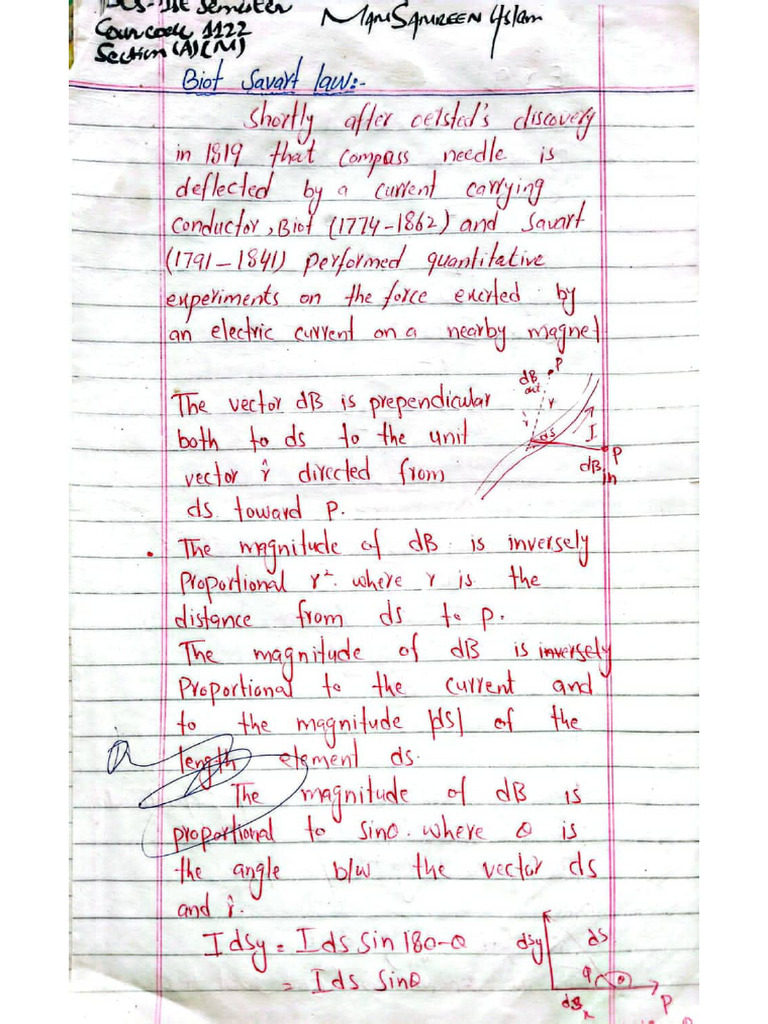 IIE Semester
Cour code 1122
Section (A) (M)
Biot Savart law:-
Shortly after oelsted's discovery
in 1819 that compass needle is
deflected by a current carrying
conductor, Biot (1774-1862) and Savart
(1791-1841) performed quantitative
experiments on the force exerted by
an electric current on a nearby magnet
The vector dB is prependicular
both to ds to the unit
vector r̂ directed from
ds toward p.
dB out
P
r
r̂
ds
I
P
dB in
• The magnitude of dB is inversely
Proportional r². where r is the
distance from ds to p.
The magnitude of dB is inversely
Proportional to the current and
to the magnitude |ds| of the
length element ds.
The magnitude of dB is
proportional to sinθ. where θ is
the angle b/w the vector ds
and r̂.
Idsy = Ids Sin 180-θ
= Ids Sinθ
dsy
ds
φ
θ
dsx
P